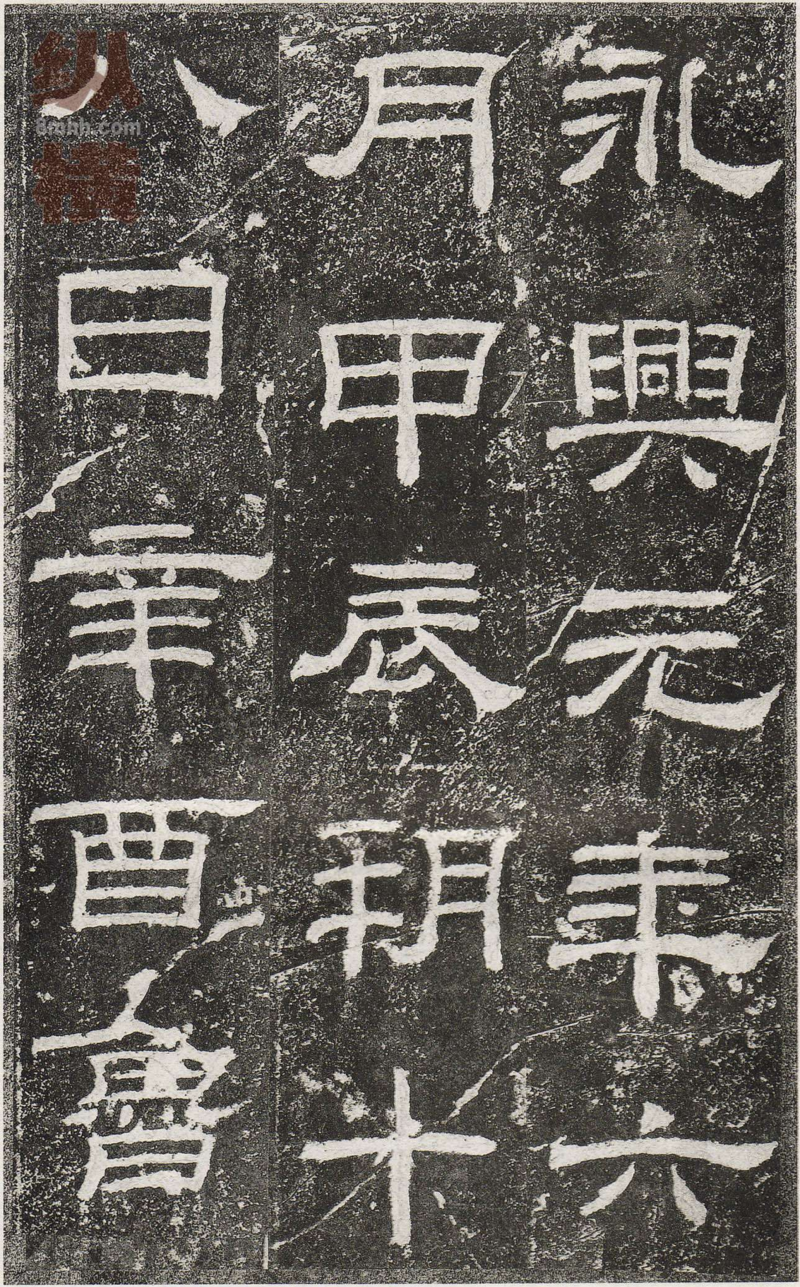 永興元年六
月甲辰朔十
八日辛酉魯
纵横